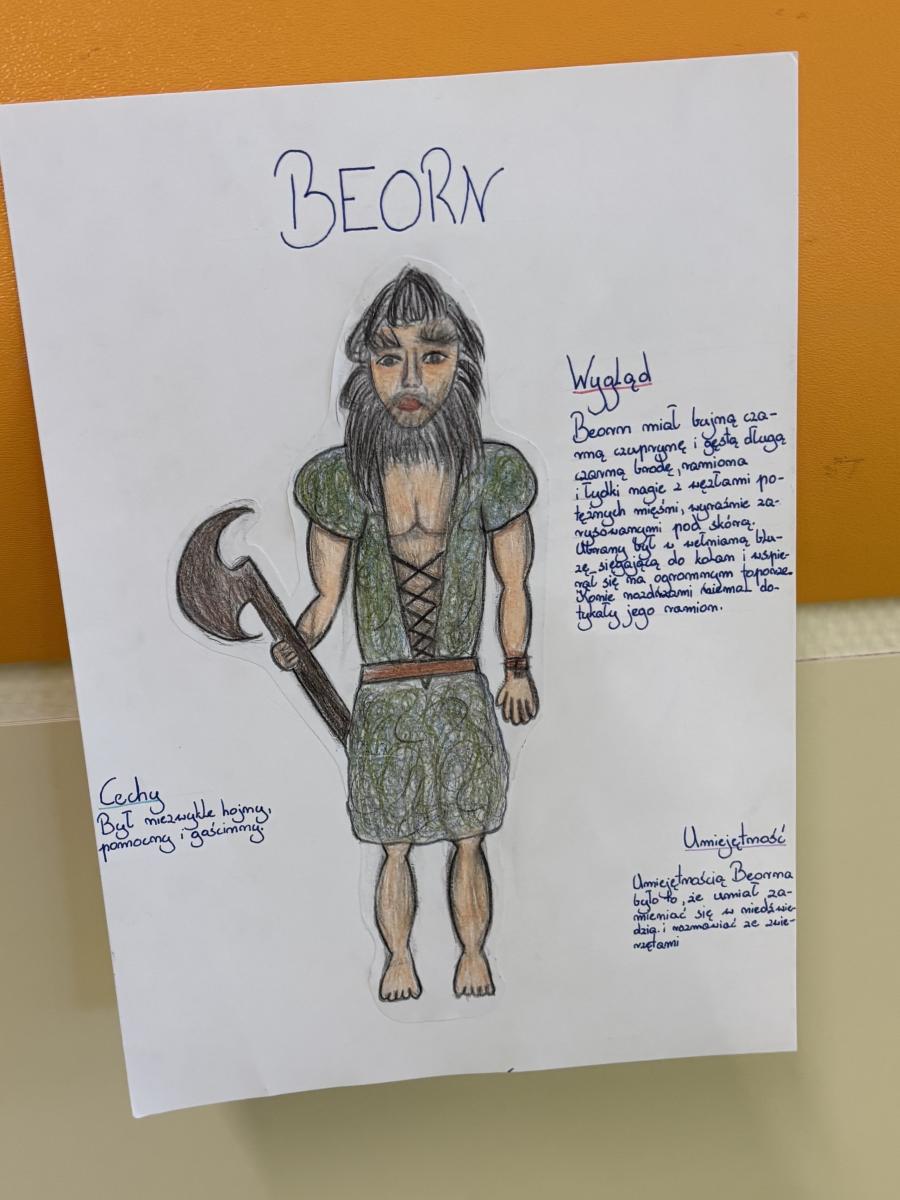 BEORN
Wygląd
Beorn miał bujną cza-
rną czuprynę i gęstą długą
czarną brodę, ramiona
i łydki nagie z węzłami po-
tężnych mięśni, wyraśnie za-
rysowanymi pod skórą.
Ubrany był w wełnianą blu-
zę sięgającą do kolan i wspie-
rał się na ogromnym toporze.
Konie nozdrzami niemal do-
tykały jego ramion.
Cechy
Był niezwykle hojny,
pomocny i gościnny.
Umiejętność
Umiejętnością Beorna
było to, że umiał za-
mieniać się w niedźwie-
dzia i rozmawiać ze zwie-
rzętami